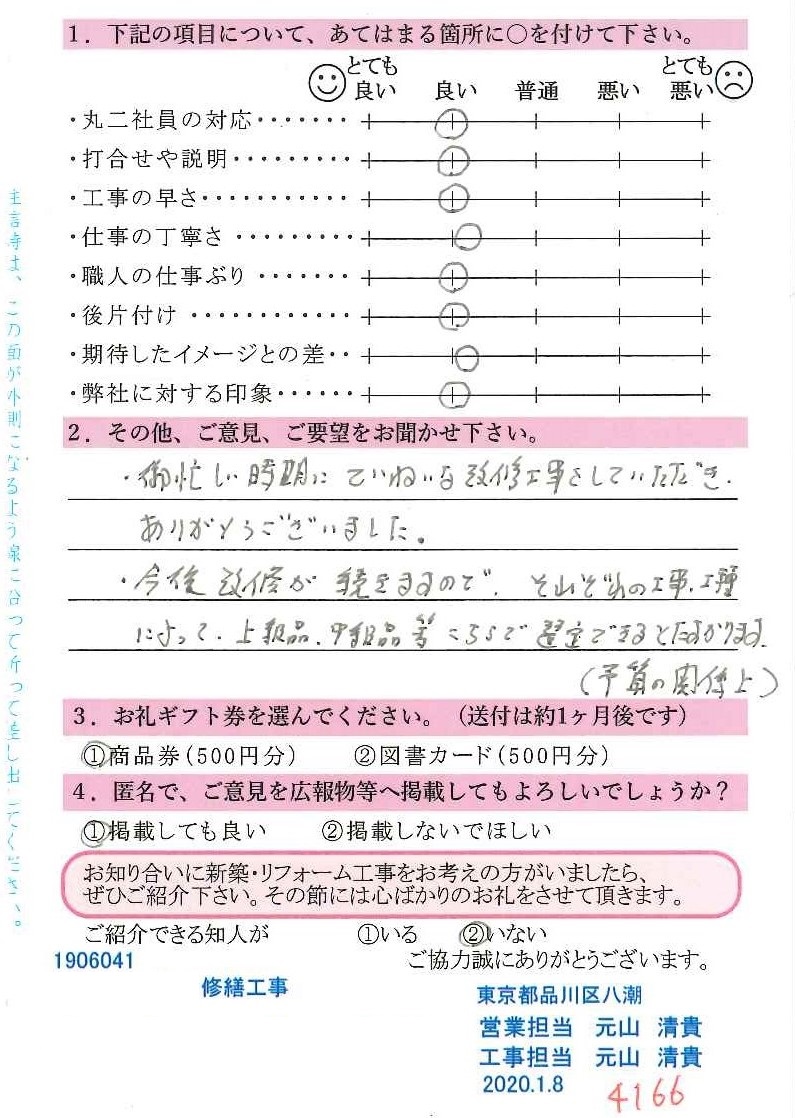 1．下記の項目について、あてはまる箇所に○を付けて下さい。
とても良い 良い 普通 悪い とても悪い
・丸二社員の対応・・・・・・・
・打合せや説明・・・・・・・・・
・工事の早さ・・・・・・・・・・・
・仕事の丁寧さ・・・・・・・・・
・職人の仕事ぶり・・・・・・・
・後片付け・・・・・・・・・・・・
・期待したイメージとの差・・
・弊社に対する印象・・・・・・
2．その他、ご意見、ご要望をお聞かせ下さい。
・御忙しい時期にていねいな改修工事をしていただき、
ありがとうございました。
・今後改修が続きますので、それぞれの工事、工種
によって、上級品、中級品等こちらで選定できるとたすかります。
（予算の関係上）
3．お礼ギフト券を選んでください。（送付は約1ヶ月後です）
①商品券（500円分） ②図書カード（500円分）
4．匿名で、ご意見を広報物等へ掲載してもよろしいでしょうか？
①掲載しても良い ②掲載しないでほしい
お知り合いに新築・リフォーム工事をお考えの方がいましたら、
ぜひご紹介下さい。その節には心ばかりのお礼をさせて頂きます。
ご紹介できる知人が ①いる ②いない
1906041 ご協力誠にありがとうございます。
修繕工事
東京都品川区八潮
営業担当 元山 清貴
工事担当 元山 清貴
2020.1.8
4166
、この面が外側になるよう線に沿って折って差し出してください。